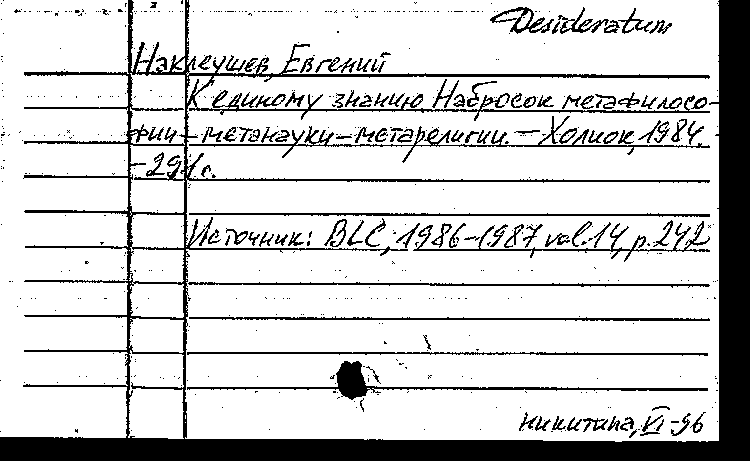 Desideratum
Наклеушев, Евгений
К единому знанию. Набросок метафилосо-
фии – метанауки – метарелигии. – Холиок, 1984. -
- 291 с.
Источник: BLC, 1986-1987, vol. 14, p. 242
никитина, VI-96